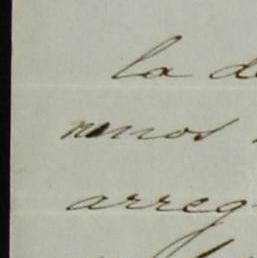 la d
menos
arreg